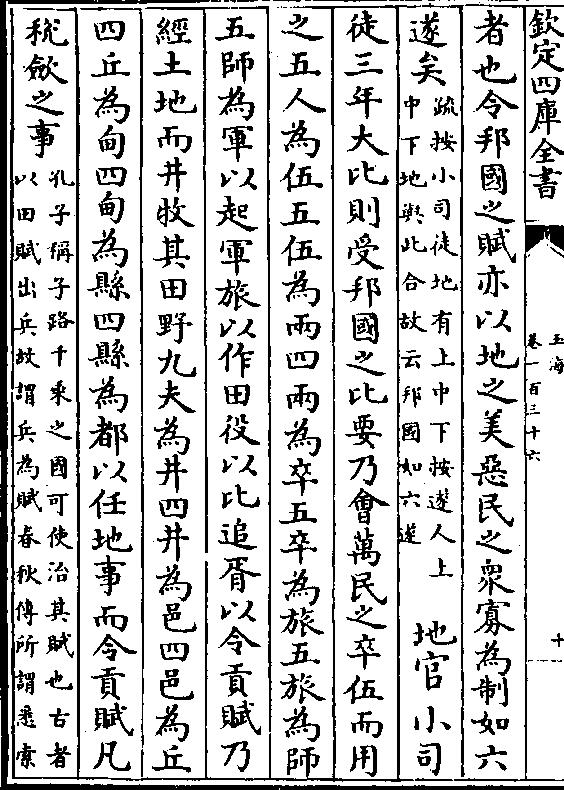 欽定四庫全書
玉海
卷一百三十六
十
者也令邦國之賦亦以地之美惡民之衆寡為制如六
遂矣
疏按小司徒地有上中下按遂人上
中下地與此合故云邦國如六遂
地官小司
徒三年大比則受邦國之比要乃會萬民之卒伍而用
之五人為伍五伍為兩四兩為卒五卒為旅五旅為師
五師為軍以起軍旅以作田役以比追胥以令貢賦乃
經土地而井牧其田野九夫為井四井為邑四邑為丘
四丘為甸四甸為縣四縣為都以任地事而令貢賦凡
稅斂之事
孔子稱子路千乘之國可使治其賦也古者
以田賦出兵故謂兵為賦春秋傳所謂悉索